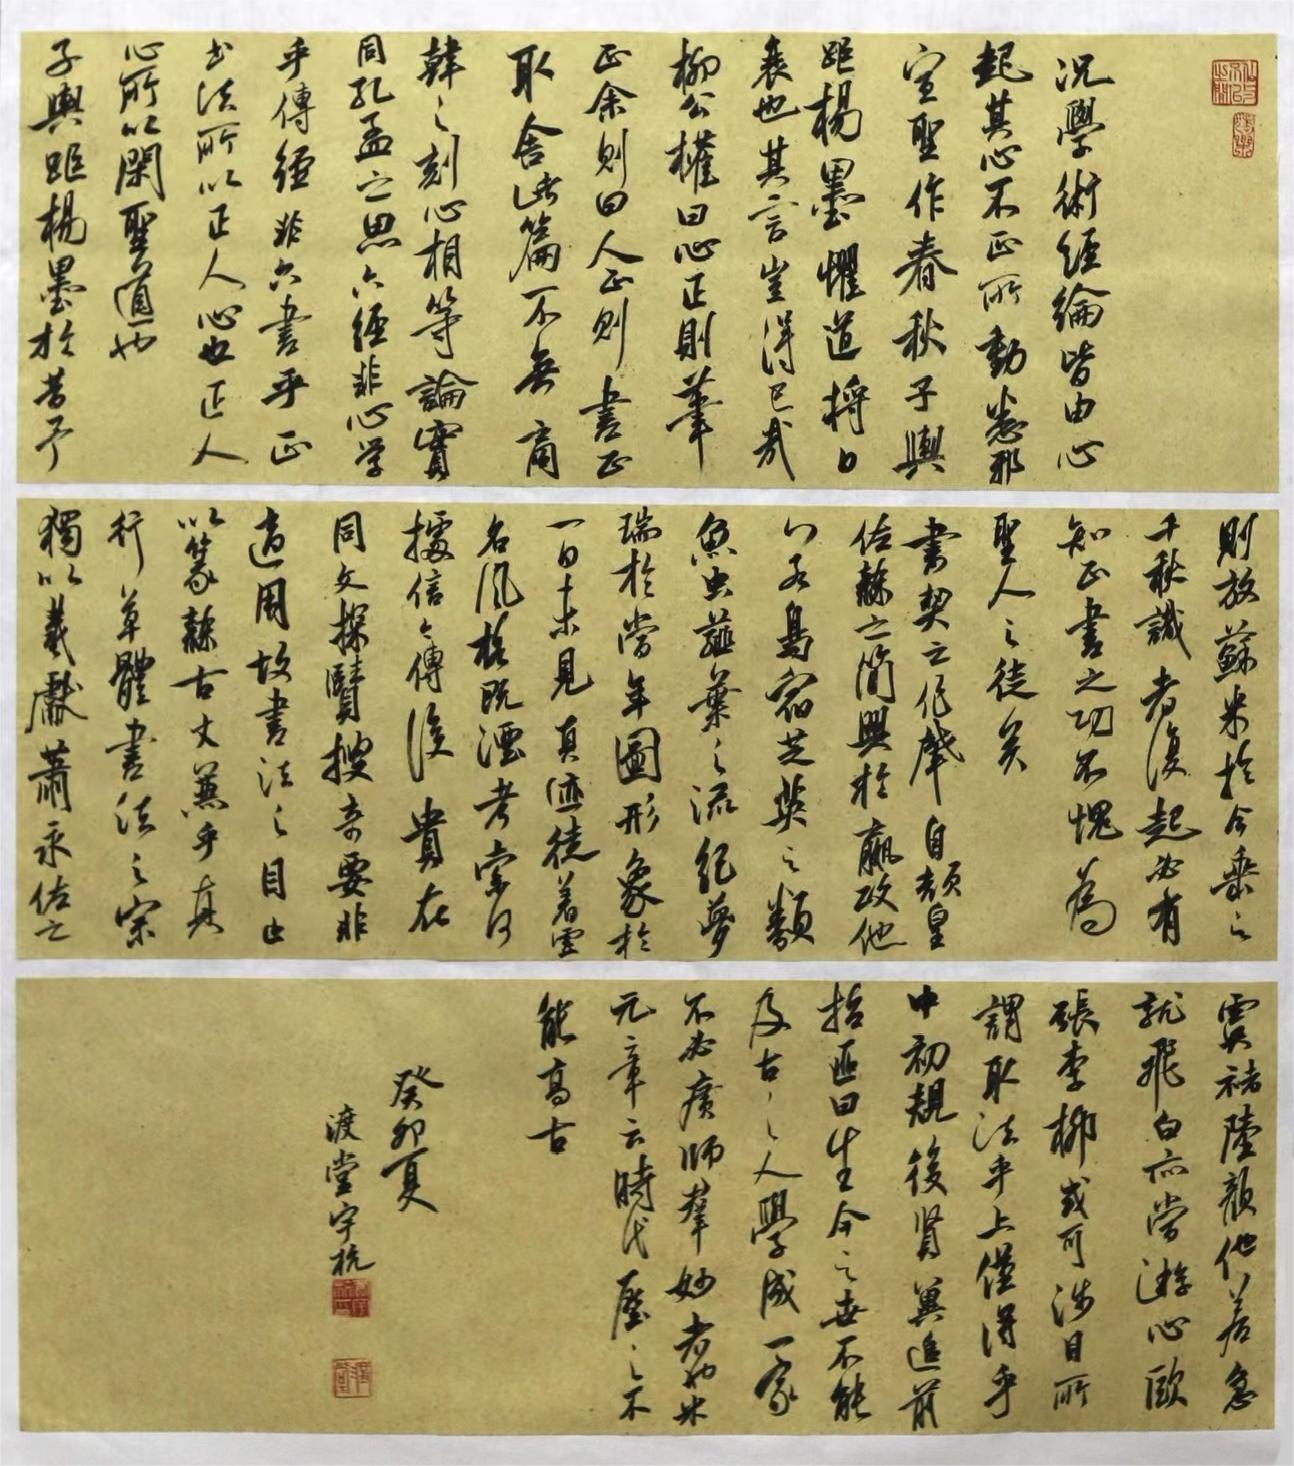 况學術經綸皆由心
起其心不正所動悉邪
宣聖作春秋子輿
距楊墨懼道將日
衰也其言豈得已哉
柳公權曰心正則筆
正余則曰人正則書正
取舍諸篇不無商
韓之刻心相等論實
同孔孟之思六經非心学
乎傳經非六書乎正
书法所以正人心也正人
心所以閑聖道也
子輿距楊墨於昔予
則放蘇米於今垂之
千秋識者復起必有
知正書之功不愧為
聖人之徒矣
書契之作肇自頡皇
佐隸之簡興於嬴政他
若鳥宿芝英之類
魚虫薤葉之流紀夢
瑞於當年圖形象於
一日未見真迹徒著虛
名風格既湮考索何
據信今傳後貴在
同文探賾搜奇要非
適用故書法之目止
以篆隸古文兼乎真
行草體書法之宗
獨以羲獻蕭永佐之
虞褚陸顏他若急
就飛白亦當游心歐
張李柳或可涉目所
謂取法乎上僅得乎
中初規後賢冀追前
哲匪曰生今之世不能
及古之人學成一家
不必廣師群妙者也米
元章云時代壓之不
能高古
癸卯夏
渡堂宇杭